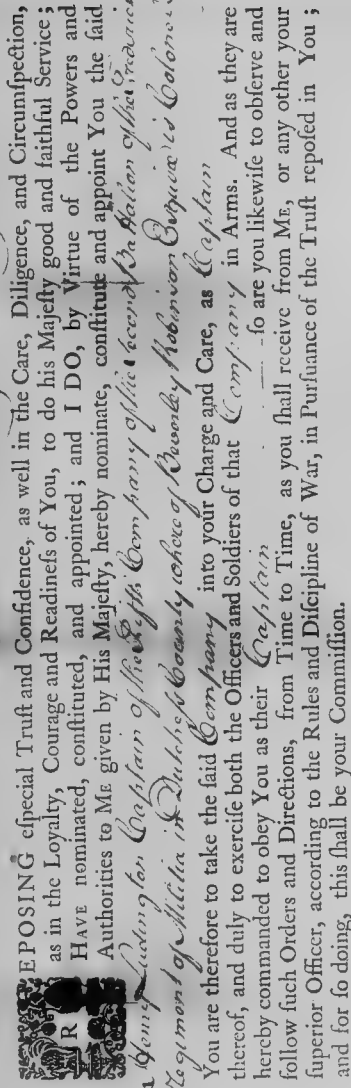 REPOSING eſpecial Truſt and Confidence, as well in the Care, Diligence, and Circumſpection,
as in the Loyalty, Courage and Readineſs of You, to do his Majeſty good and faithful Service;
HAVE nominated, conſtituted, and appointed; and I DO, by Virtue of the Powers and
Authorities to ME given by His Majeſty, hereby nominate, conſtitute and appoint You the ſaid
Henry Ludington Captain of the Fifth Company of the Second Battalion of the
Regiment of Militia in Dutcheſs County whereof Beverley Robinson Esquire is Colonel
You are therefore to take the ſaid Company into your Charge and Care, as Captain
thereof, and duly to exerciſe both the Officers and Soldiers of that Company in Arms. And as they are
hereby commanded to obey You as their Captain ſo are you likewiſe to obſerve and
follow ſuch Orders and Directions, from Time to Time, as you ſhall receive from ME, or any other your
ſuperior Officer, according to the Rules and Diſcipline of War, in Purſuance of the Truſt repoſed in You;
and for ſo doing, this ſhall be your Commiſſion.